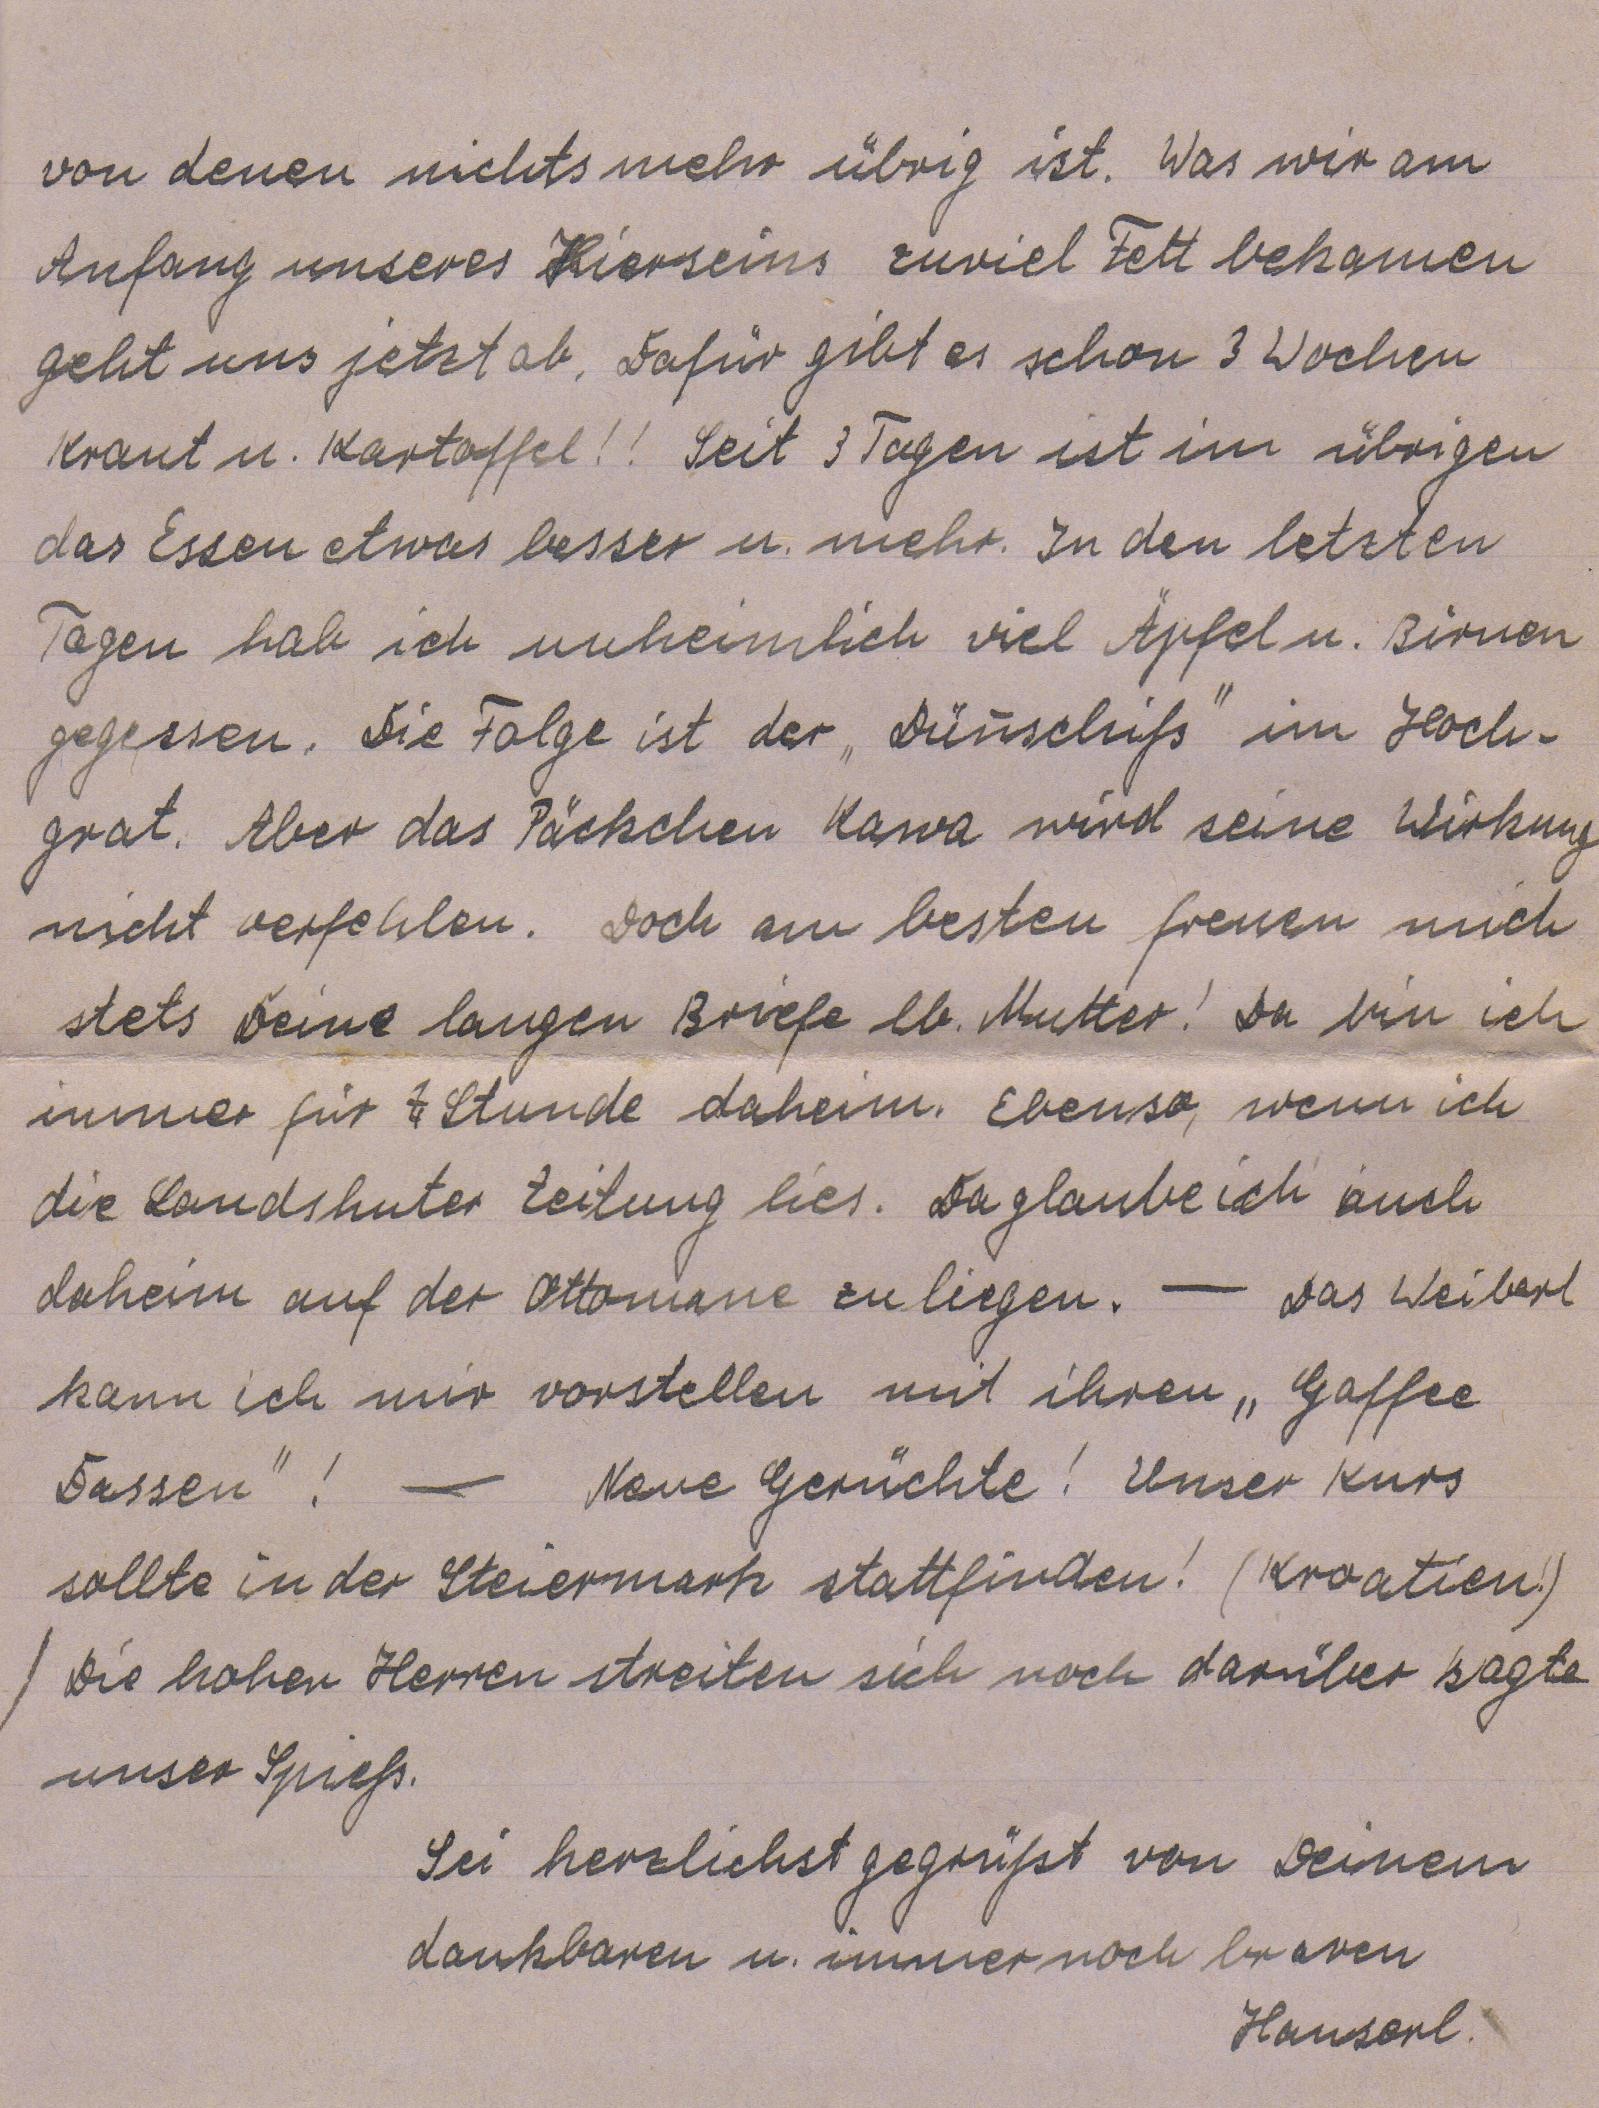 von denen nichts mehr übrig ist. Was wir am
Anfang unseres Hierseins zuviel Fett bekamen
geht uns jetzt ab. Dafür gibt es schon 3 Wochen
Kraut u. Kartoffel!! Seit 3 Tagen ist im übrigen
das Essen etwas besser u. mehr. In den letzten
Tagen hab ich unheimlich viel Äpfel u. Birnen
gegessen. Die Folge ist der „Dün̄schiß" im Hoch-
grat. Aber das Päckchen Kawa wird seine Wirkung
nicht verfehlen. Doch am besten freuen mich
stets Deine langen Briefe lb. Mutter! Da bin ich
immer für Stunde daheim. Ebenso, wenn ich
die Landshuter Zeitung lies. Da glaube ich auch
daheim auf der Ottomane zu liegen. — Das Weiberl
kann ich mir vorstellen mit ihren „Gaffee
Dassen"! — Neue Gerüchte! Unser Kurs
sollte in der Steiermark stattfinden! (Kroatien!)
/ Die hohen Herren streiten sich noch darüber sagte
unser Spieß.
Sei herzlichst gegrüßt von Deinem
dankbaren u. immer noch braven
Hanserl.